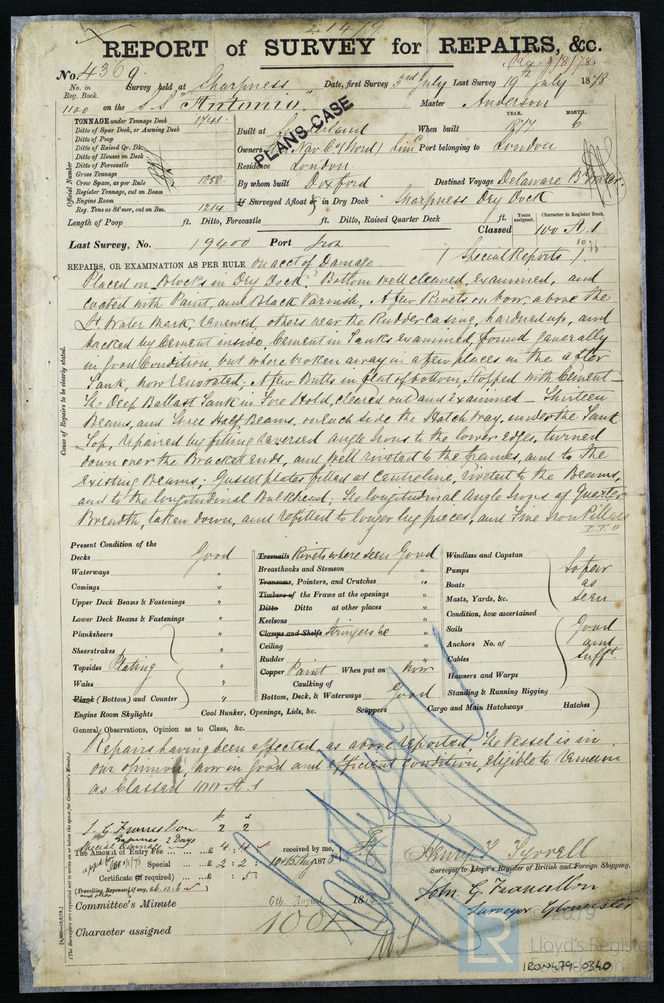 REPORT of SURVEY for REPAIRS, &c.
No. 4369.
No. in Reg. Book. Survey held at Sharpness Date, first Survey 3rd July Last Survey 19th July 1878
1100 on the S.S. "Antonio" Master Anderson
PLANS CASE
TONNAGE under Tonnage Deck 1741
Ditto of Spar Deck, or Awning Deck
Ditto of Poop
Ditto of Raised Qr. Dk.
Ditto of Houses on Deck
Ditto of Forecastle
Gross Tonnage
Crew Space, as per Rule
Register Tonnage, cut on Beam
Engine Room
Reg. Tons as St'mer, cut on Bm. 1214
Official Number
Built at
When built YEAR. 1877 MONTH. 6
Owners Port belonging to London
Residence London
By whom built Doxford Destined Voyage Delaware
If Surveyed Afloat or in Dry Dock. Sharpness Dry Dock
Length of Poop ft. Ditto, Forecastle ft. Ditto, Raised Quarter Deck ft.
Years assigned. Character in Register Book.
Classed 100 A.1
Last Survey, No. 19400 Port
Special Reports
REPAIRS, OR EXAMINATION AS PER RULE on acct of Damage
Cause of Repairs to be clearly stated.
Placed on Blocks in Dry Dock. Bottom well cleaned, examined, and
coated with Paint, and Black Varnish, A few Rivets on bow, above the
Lt Water Mark, renewed, others near the Rudder casing, hardened up, and
backed by Cement inside, Cement in Tanks examined, found generally
in good Condition, but where broken away in a few places in the after
Tank, now renovated. A few Butts in flat of bottom, stopped with Cement
The Deep Ballast Tank in Fore Hold, cleared out and examined — Thirteen
Beams, and Three Half Beams, on each side the Hatch way, under the Tank
Top, repaired by fitting reversed angle Irons to the lower edges, turned
down over the Bracket ends, and well riveted to the frames, and to the
existing Beams; Gusset plates fitted at Centreline, riveted to the Beams,
and to the longitudinal Bulkhead; The longitudinal angle Irons of Quarter
Breadth, taken down, and refitted to longer lug pieces, and Five Iron Pillars
Present Condition of the
Decks Good
Waterways "
Comings "
Upper Deck Beams & Fastenings "
Lower Deck Beams & Fastenings "
Planksheers
Sheerstrakes
Topsides Plating "
Wales
Plank (Bottom) and Counter "
Engine Room Skylights
Treenails Rivets where seen Good
Breasthooks and Stemson "
Transoms, Pointers, and Crutches "
Timbers of the Frame at the openings "
Ditto Ditto at other places "
Keelsons "
Clamps and Shelfs Stringers &c "
Ceiling "
Rudder "
Copper Paint When put on now
Caulking of
Bottom, Deck, & Waterways Good
Coal Bunker, Openings, Lids, &c. Scuppers
Windlass and Capstan
Pumps
Boats
Masts, Yards, &c.
So far as seen
Condition, how ascertained
Sails
Anchors No. of
Cables
Good and Sufft.
Hawsers and Warps
Standing & Running Rigging
Cargo and Main Hatchways Hatches
General Observations, Opinion as to Class, &c.
Repairs having been effected, as above reported, the Vessel is in
our opinion, now in good and efficient condition, eligible to remain
as classed 100 A.1
2 2
Expenses 2 Days
Special Damage
The Amount of Entry Fee £ 4 : 4 : received by me,
Special £ 2 : 2 :
Certificate (if required) £ : 5 :
(Travelling Expenses, if any, £
Henry T. Tyrrell
Surveyor to Lloyd's Register of British and Foreign Shipping.
John G. Francillon
Surveyor Gloucester
Committee's Minute 6th August 1878
Character assigned 100 A
(The Surveyors are requested not to write on or below the space for Committee's Minute.)
© 2019
LR
Lloyd's Register
Foundation
IRON479-0340